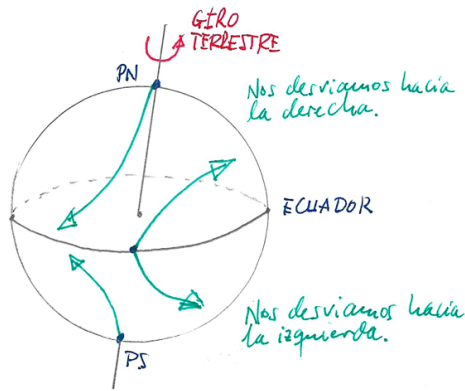 GIRO
TERRESTRE
PN
Nos desviamos hacia
la derecha.
ECUADOR
Nos desviamos hacia
la izquierda.
PS